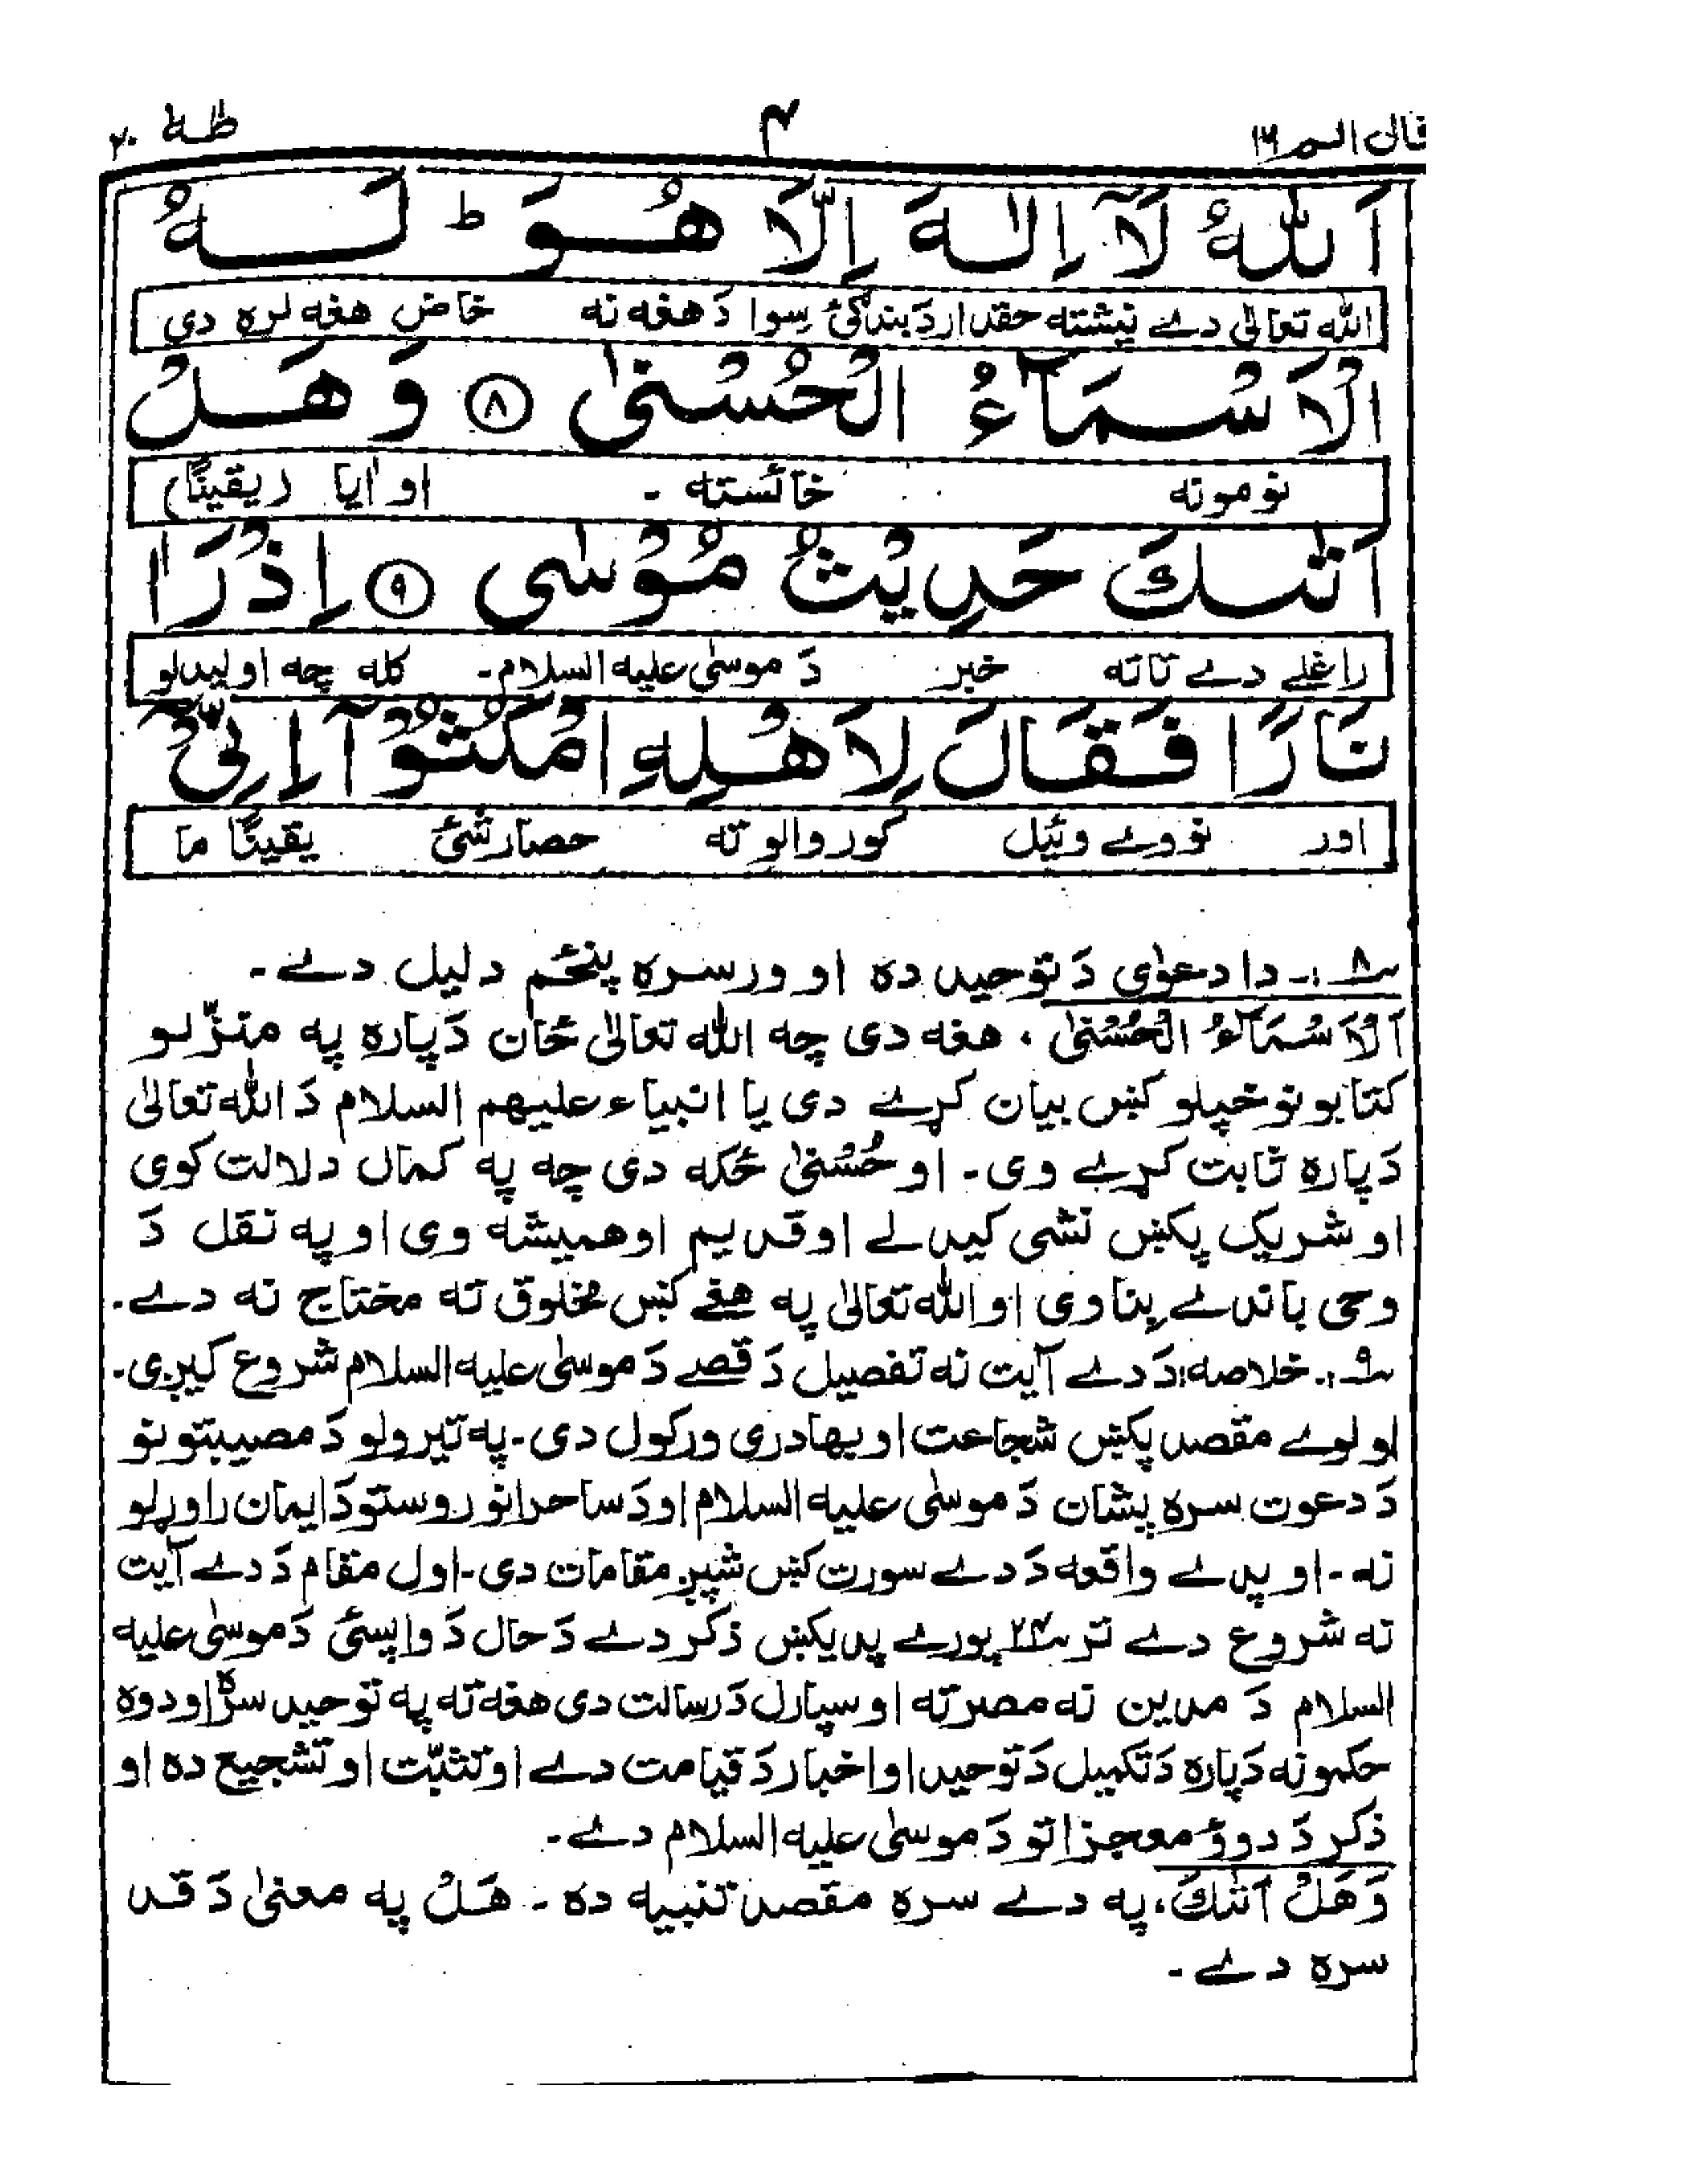 قال الم ١٦ ۴ طٰهٰ ٢٠
اَللّٰهُ لَآ اِلٰهَ اِلَّا هُوَ ؕ لَهُ
الله تعالیٰ دے نیشته حقدار دَ بندګئ سوا دَ هغه نه خاص هغه لره دی
الْاَسْمَآءُ الْحُسْنٰی ⑧ وَ هَلْ
نومونه خائسته ۔ او اٰیا (یقینًا)
اَتٰىكَ حَدِیْثُ مُوْسٰی ⑨ اِذْ رَاٰ
راغلے دے تاته خبر دَ موسیٰ علیه السلام۔ کله چه اولیدلو
نَارًا فَقَالَ لِاَهْلِهِ امْكُثُوْۤا اِنِّیْۤ
اور نو وے وئیل کور والو ته حصار شئ یقینًا ما
ـ٨ :۔ دا دعوٰی دَ توحید ده او ورسره پنځم دلیل دے۔
اَلْاَسْمَآءُ الْحُسْنٰی، هغه دی چه الله تعالیٰ ځان دَپاره په منزّلو
کتابونو خپلو کښ بیان کړے دی یا انبیاء علیهم السلام دَ الله تعالیٰ
دَپاره ثابت کړے وی۔ او حُسْنٰی ځکه دی چه په کمال دلالت کوی
او شریک پکښ نشی کیدلے او قدیم او همیشه وی او په نقل دَ
وحی باندے بنا وی او الله تعالیٰ په هغے کښ مخلوق ته مختاج نه دے۔
ـ٩ :۔ خلاصه: دَ دے آیت نه تفصیل دَ قصے دَ موسیٰ علیه السلام شروع کیږی۔
اولوے مقصد پکښ شجاعت او بهادری ورکول دی۔ په تیرولو دَ مصیبتونو
دَ دعوت سره پشان دَ موسیٰ علیه السلام او دَ ساحرانو روستو دَ ایمان راوړلو
نه۔ او پدے واقعه دَ دے سورت کښ شپږ مقامات دی۔ اول مقام دَ دے آیت
نه شروع دے تر ـ٢٤ پورے پدیکښ ذکر دے دَ حال دَ واپسئ دَ موسیٰ علیه
السلام دَ مدین نه مصر ته او سپارل دَ رسالت دی هغه ته په توحید سره او دوه
حکمونه دَپاره دَ تکمیل دَ توحید او اخبار دَ قیامت دے او تثبّت او تشجیع ده او
ذکر دَ دوؤ معجزاتو دَ موسیٰ علیه السلام دے۔
وَهَلْ اَتٰىكَ، په دے سره مقصد تنبیه ده ۔ هَلْ په معنیٰ دَ قد
سره دے ۔